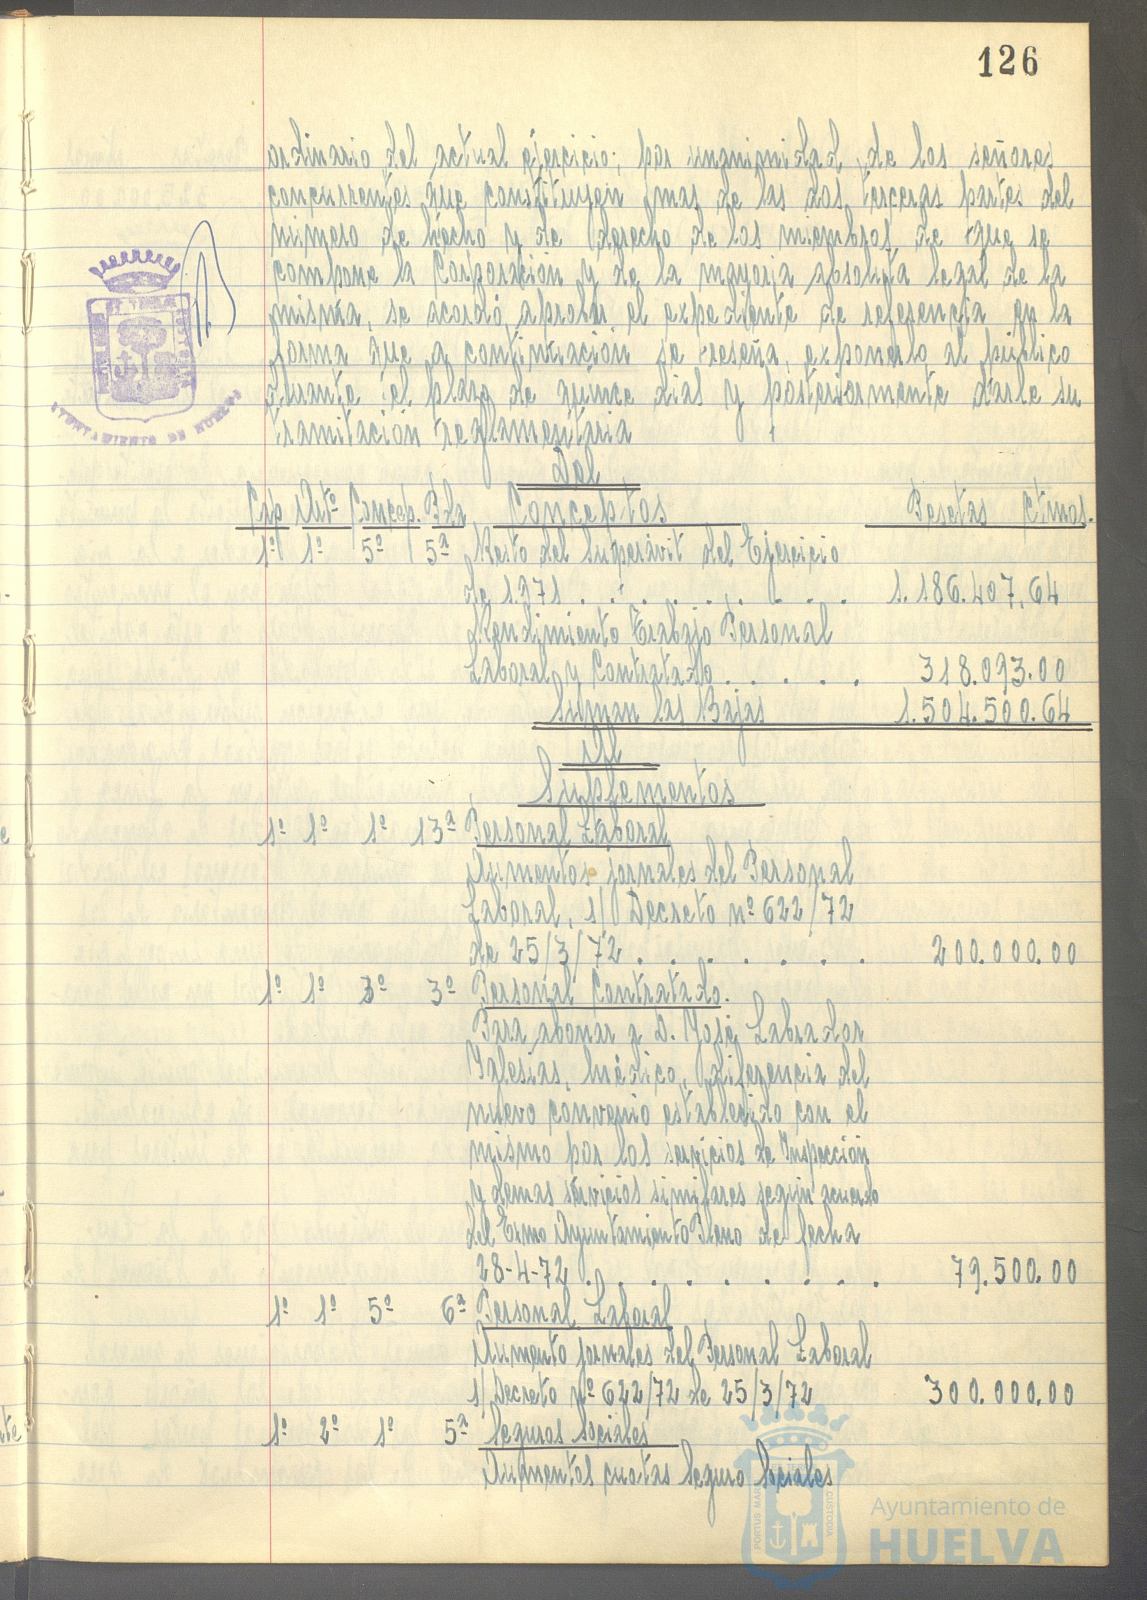 126
ordinario del actual ejercicio; por unanimidad, de los señores
concurrentes que constituyen mas de las dos terceras partes del
número de hecho y de derecho de los miembros de que se
compone la Corporación y de la mayoria absoluta legal de la
misma, se acordó aprobar el expediente de referencia en la
forma que a continuación se reseña, exponerlo al público
durante el plazo de quince dias y posteriormente darle su
tramitación reglamentaria
AYUNTAMIENTO DE HUELVA
Del
Cap Artº Concep. Pda Conceptos Pesetas Ctmos.
1º 1º 5º 5ª Resto del Superávit del Ejercicio
de 1.971 . . . . . . . . . 1.186.407,64
Rendimiento Trabajo Personal
Laboral y Contratado . . . . . 318.093.00
Suman las Bajas 1.504.500.64
Al
Suplementos
1º 1º 1º 13ª Personal Laboral
Aumentos jornales del Personal
Laboral, s/ Decreto nº 622/72
de 25/3/72 . . . . . . . 200.000.00
1º 1º 3º 3º Personal Contratado.
Para abonar a D. José Labrador
Yglesias, Médico, diferencia del
nuevo convenio establecido con el
mismo por los servicios de Inspección
y demas servicios similares según acuerdo
del Exmo Ayuntamiento Pleno de fecha
28-4-72 . . . . . . . . . 79.500.00
1º 1º 5º 6ª Personal Laboral
Aumento jornales del Personal Laboral
s/ Decreto nº 622/72 de 25/3/72 300.000.00
1º 2º 1º 5ª Seguros Sociales
Aumentos cuotas Seguro Sociales
Ayuntamiento de
HUELVA